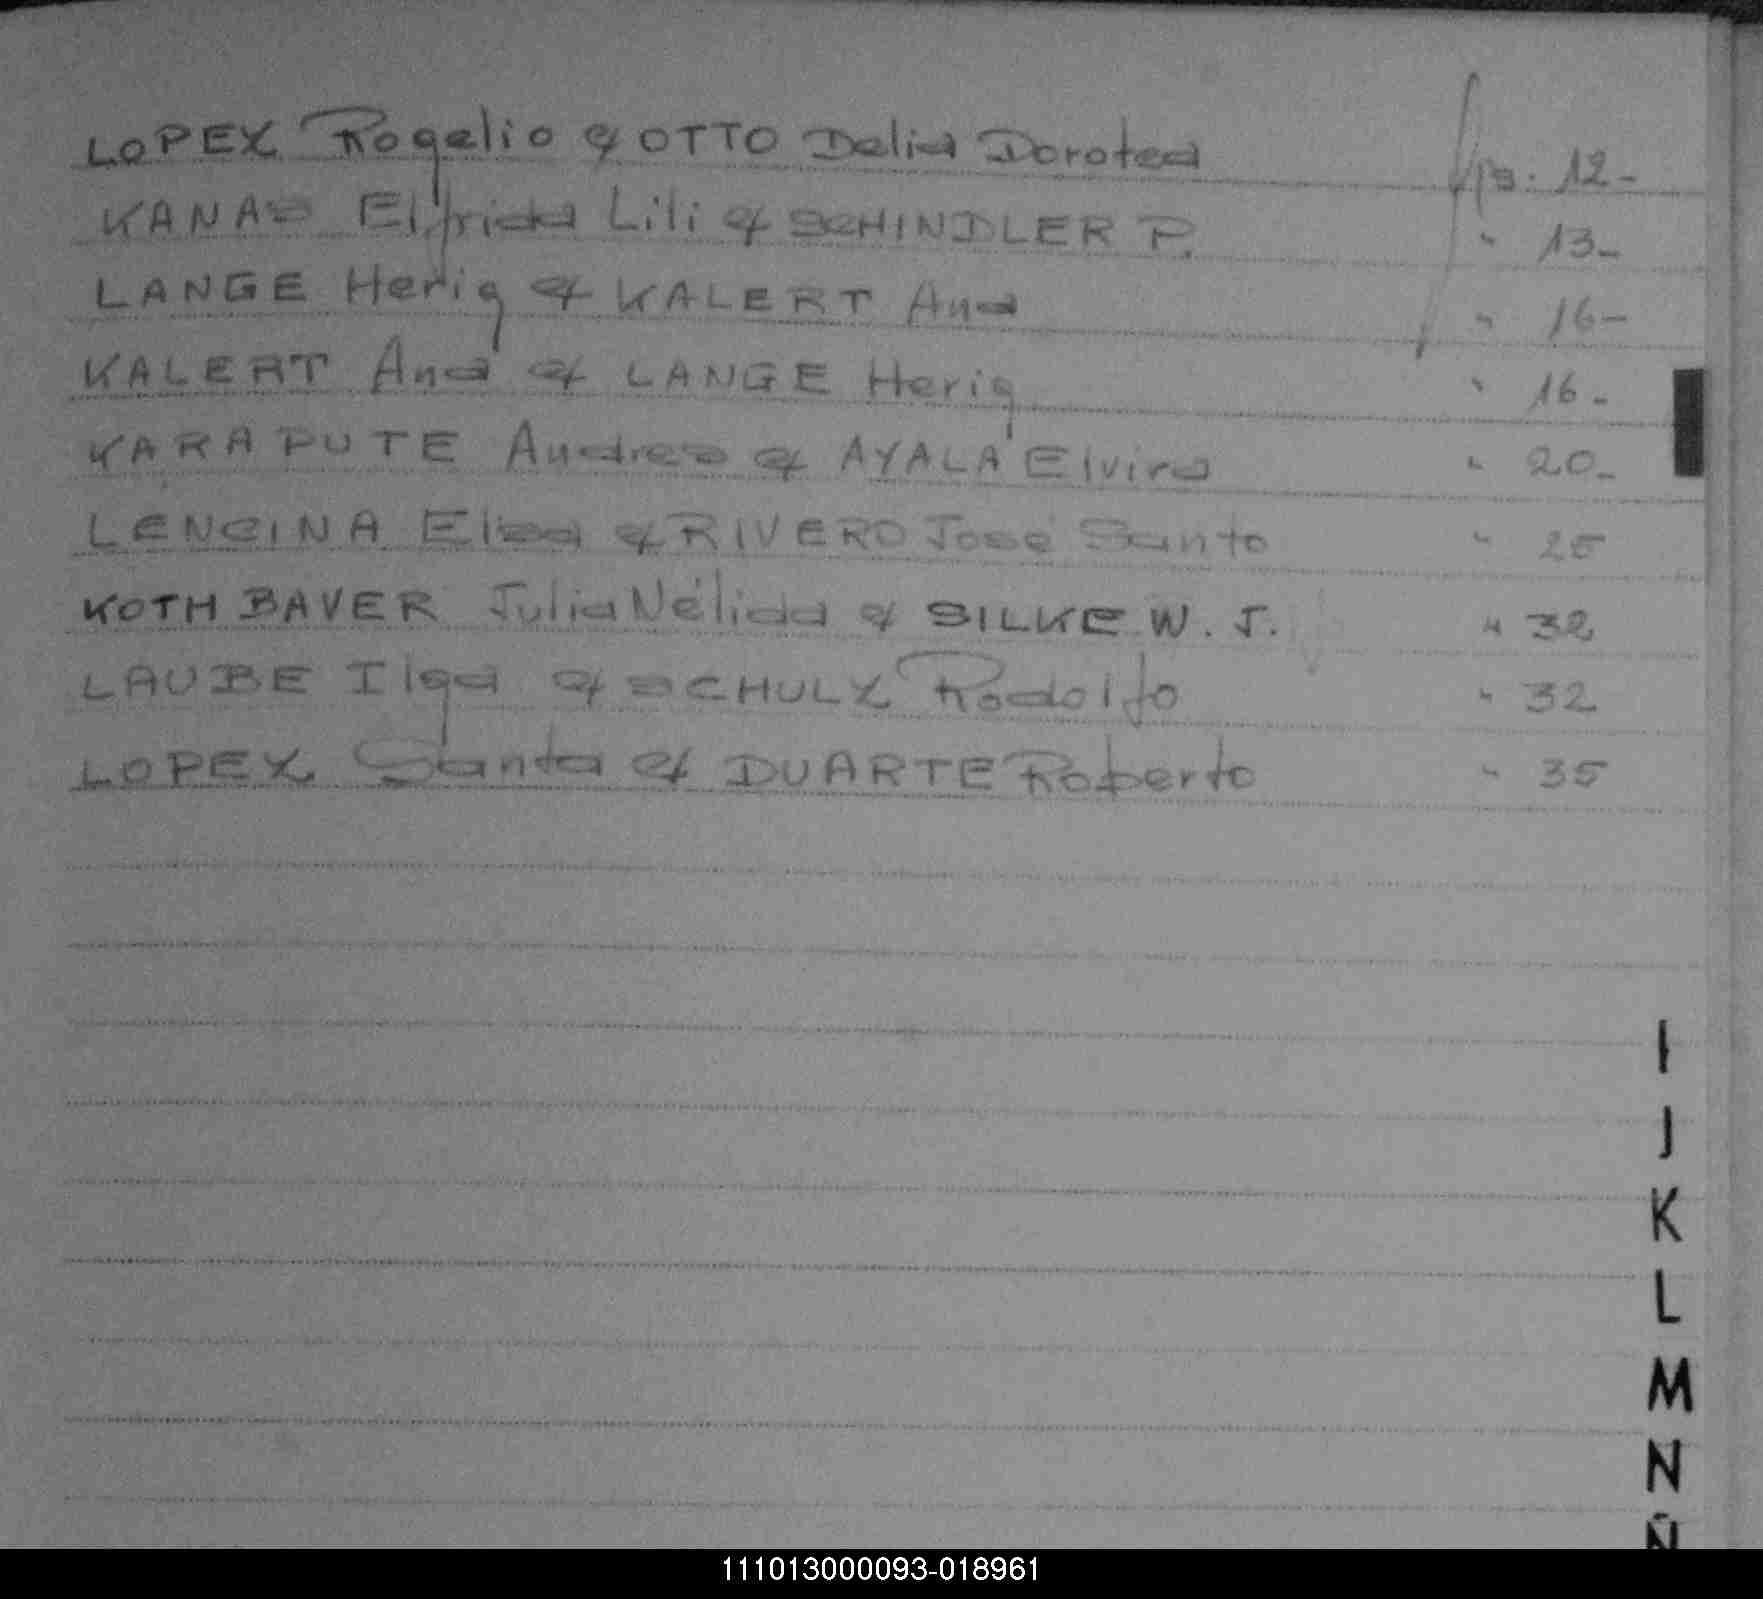 LOPEZ Rogelio & OTTO Delia Dorotea pg. 12-
KANAS Elfrida Lili & SCHINDLER P. " 13-
LANGE Herig & KALERT Ana " 16-
KALERT Ana & LANGE Herig " 16-
KARAPUTE Andres & AYALA Elvira " 20-
LENCINA Elsa & RIVERO José Santo " 25
KOTH BAVER Julia Nélida & SILKE W. J. " 32
LAUBE Ilga & SCHULZ Rodolfo " 32
LOPEZ Santa & DUARTE Roberto " 35
I
J
K
L
M
N
Ñ
111013000093-018961